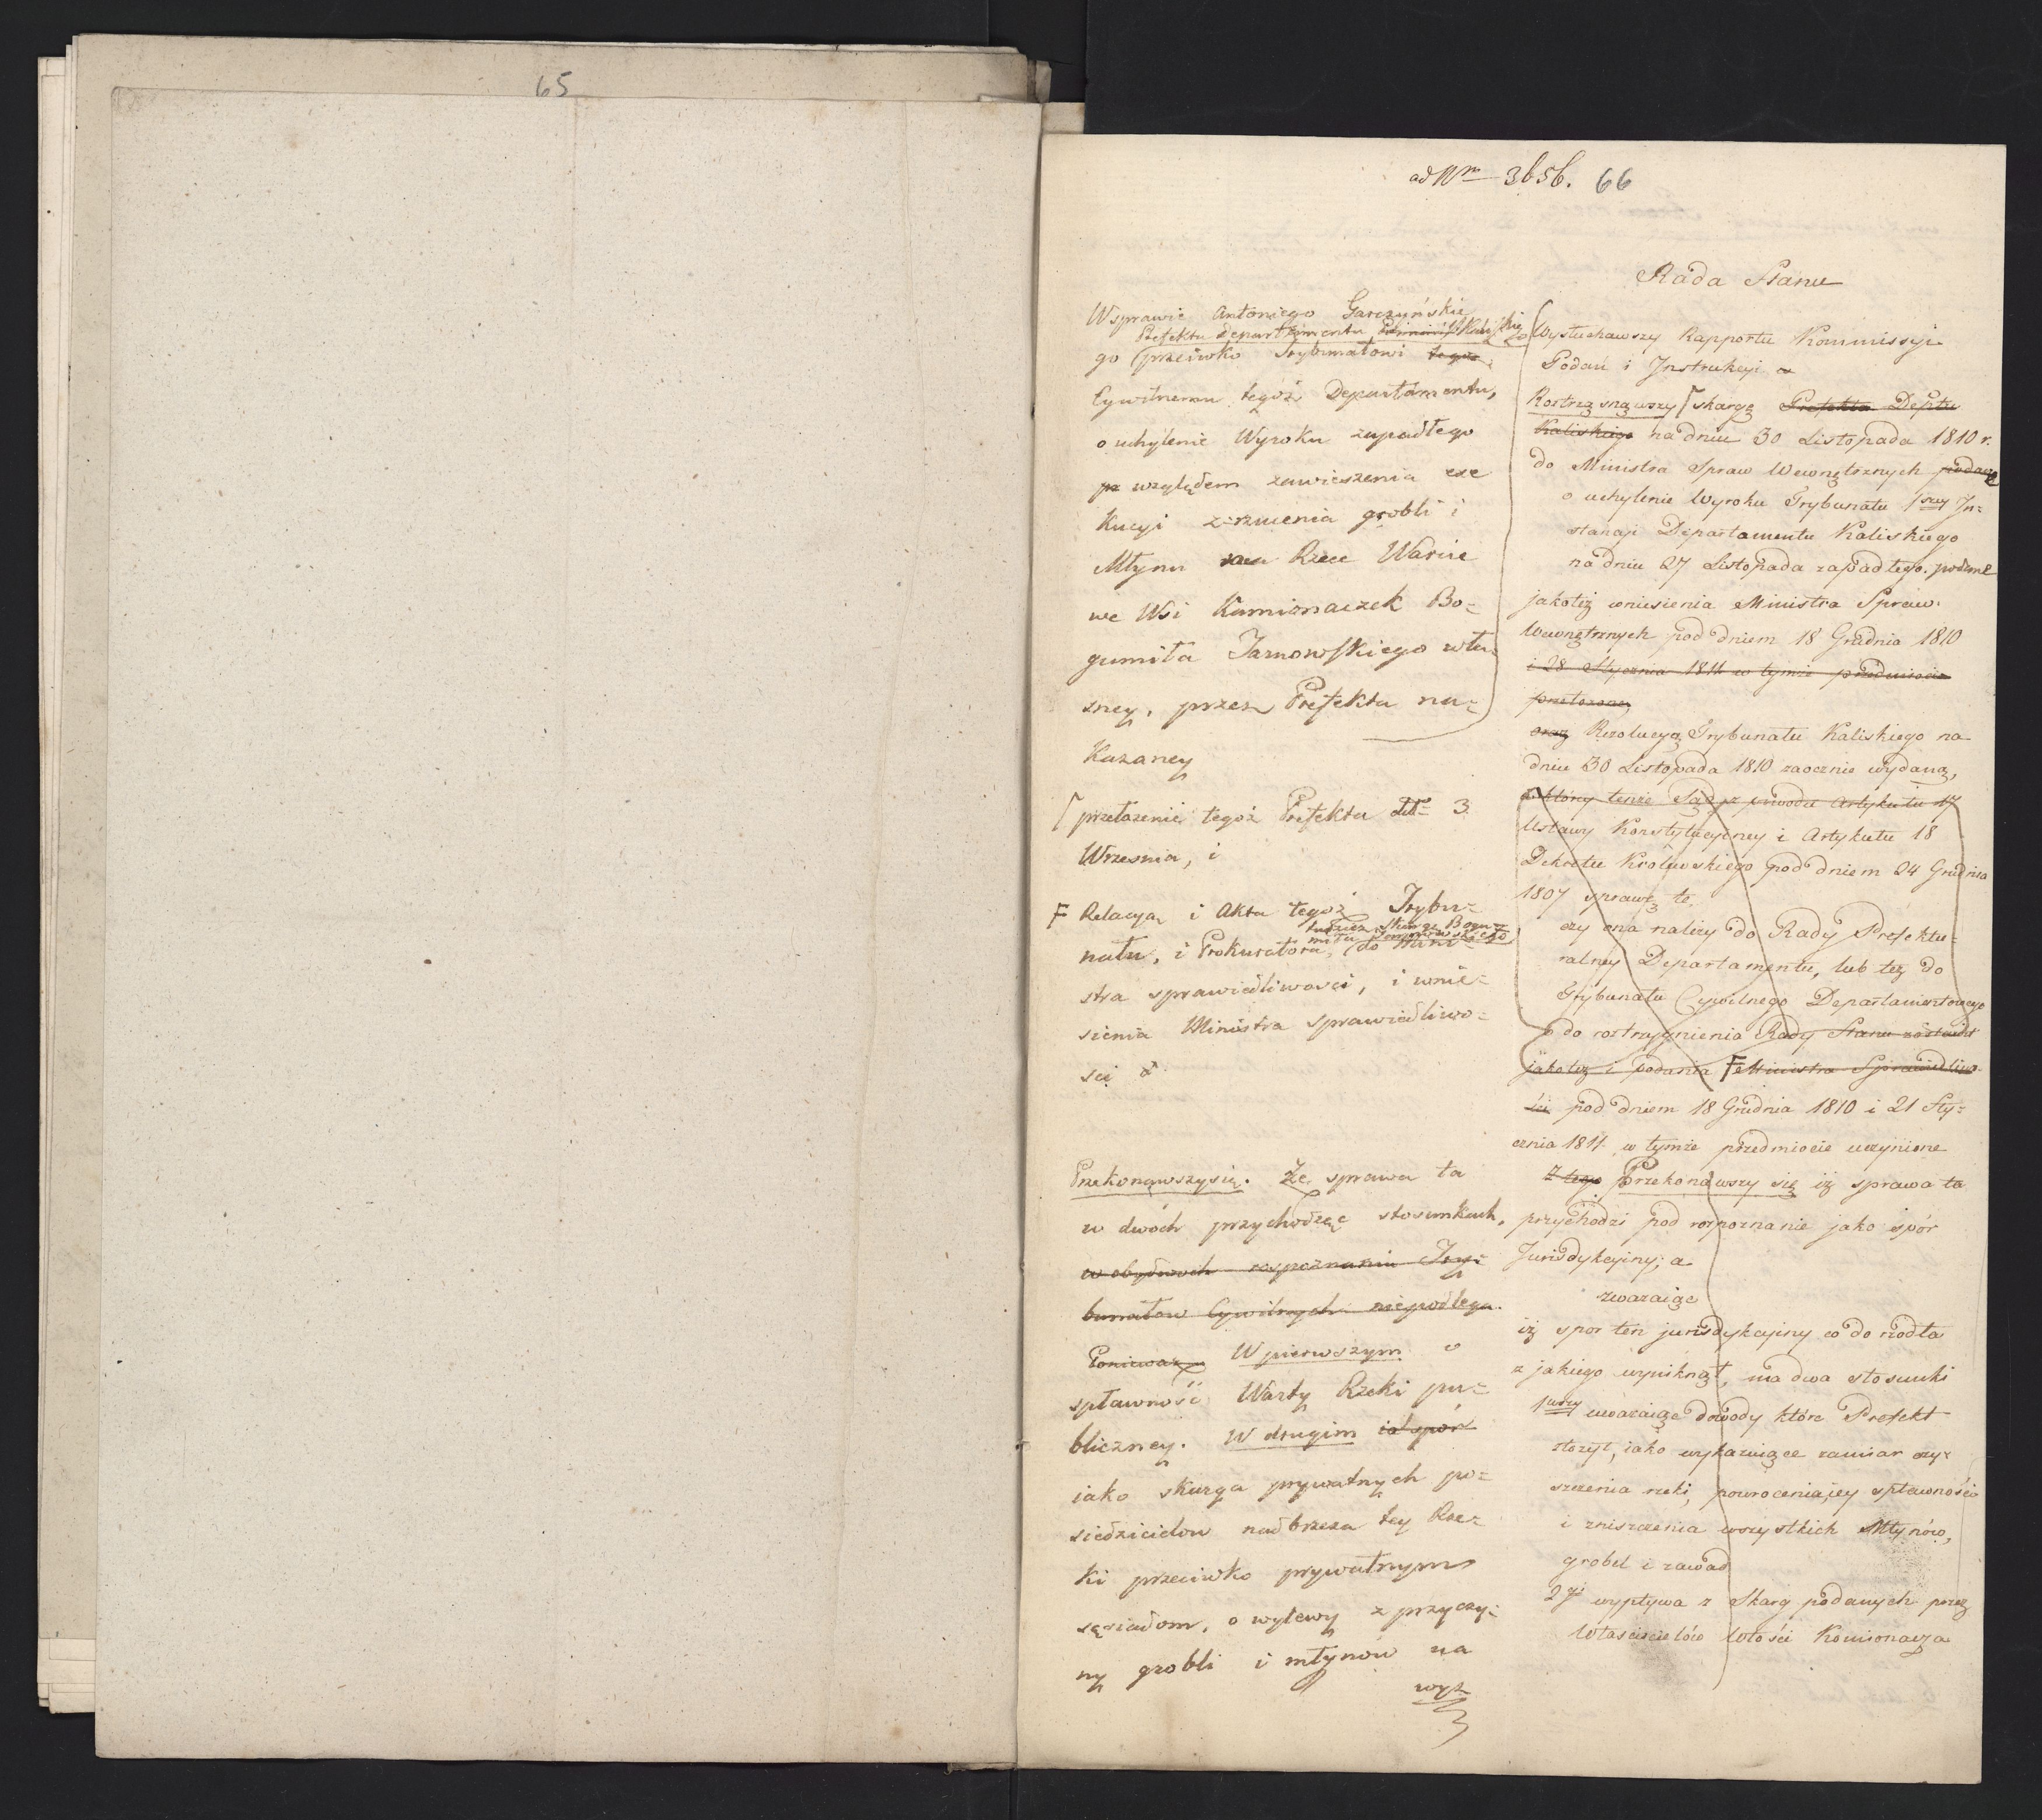 65
ad Nm 3656. 66
Rada Stanu
W sprawie Antoniego Garczyńskie
Prefektu Departamentu Kaliskie
go przeciwko Trybunałowi tegoż
Cywilnemu tegoż Departamentu,
o uchylenie Wyroku zapadłego
względem zawieszenia exe
kucyi zniesienia grobli i
Młynu na Rzece Warcie
we Wsi Kamionaczek Bo=
gumiła Tarnowskiego wła=
sney, przez Prefekta na=
kazaney
przełożenie tegoż Prefekta 3
Wrzesnia, i
F Relacyą i Akta tegoż Trybu=
tudzież Skargę Bogu=
miła Tarnowskiego
nału, i Prokuratora, do Mini
stra sprawiedliwosci, i wnie=
sienia Ministra sprawiedliwo=
sci
Przekonawszy się. Że sprawa ta
w dwóch przychodząc stosunkach,
w obydwoch rospoznaniu Try=
bunałow Cywilnych niepodlega.
Ponieważ W pierwszym o
spławność Warty Rzeki pu=
bliczney. W drugim iest spór
iako skarga prywatnych po=
siedzicielow nadbrzeża tey Rze=
ki przeciwko prywatnym
sąsiadom, o wylewy z przyczy=
ny grobli i młynów na
wyż
Wysłuchawszy Rapportu Kommissyi
Podań i Instrukcyi
Roztrząsnąwszy skargę Prefekta Deptu
Kaliskiego na dniu 30 Listopada 1810 r.
do Ministra Spraw Wewnętrznych podaną
o uchylenie Wyroku Trybunału 1szey In=
stancyi Departamentu Kaliskiego
na dniu 27 Listopada zapadłego.
jakoteż wniesienia Ministra Spraw
Wewnętrznych pod dniem 18 Grudnia 1810
i 28 Stycznia 1811 w tymże przedmiocie
przełożone,
oraz Rezolucyą Trybunału Kaliskiego na
dniu 30 Listopada 1810 zaocznie wydaną,
w którey tenże Sąd z powodu Artykułu 17
Ustawy Konstytucyiney i Artykułu 18
Dekretu Krolewskiego pod dniem 24 Grudnia
1807 sprawę te
czy ona należy do Rady Prefektu=
ralney Departamentu, lub też do
Trybunału Cywilnego Departamentowego
do roztrzygnienia Rady Stanu zostawił
jakoteż i podania F Ministra Sprawiedliwo=
ści pod dniem 18 Grudnia 1810 i 21 Sty=
cznia 1811 w tymże przedmiocie uczynione
Z tego Przekonawszy się iż sprawa ta
przychodzi pod rozpoznanie jako spór
Jurisdykcyiny; a
zwazaiąc
iż spor ten jurisdykcyiny co do rzodła
z jakiego wyniknął, ma dwa stosunki
1wszy uważaiąc dowody które Prefekt
złożył, iako wykazuiące zamiar oczy=
szczenia rzeki, powrocenia jey spławności
i zniszczenia wszystkich Młynów,
grobel i zawad
2gi wypływa z Skarg podanych przez
Właścicielów Włości Komionacza